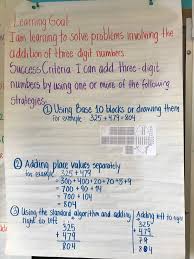 Learning Goal:
I am learning to solve problems involving the
addition of three-digit numbers.
Success Criteria: I can add three-digit
numbers by using one or more of the following
strategies:
① Using Base 10 blocks or drawing them
for example: 325 + 479 = 804
② Adding place values separately
for example: 325 + 479
= 300 + 400 + 20 + 70 + 5 + 9
= 700 + 90 + 14
= 700 + 104
= 804
③ Using the standard algorithm and adding
right to left
325
+ 479
804
Adding left to right
325
+ 479
804